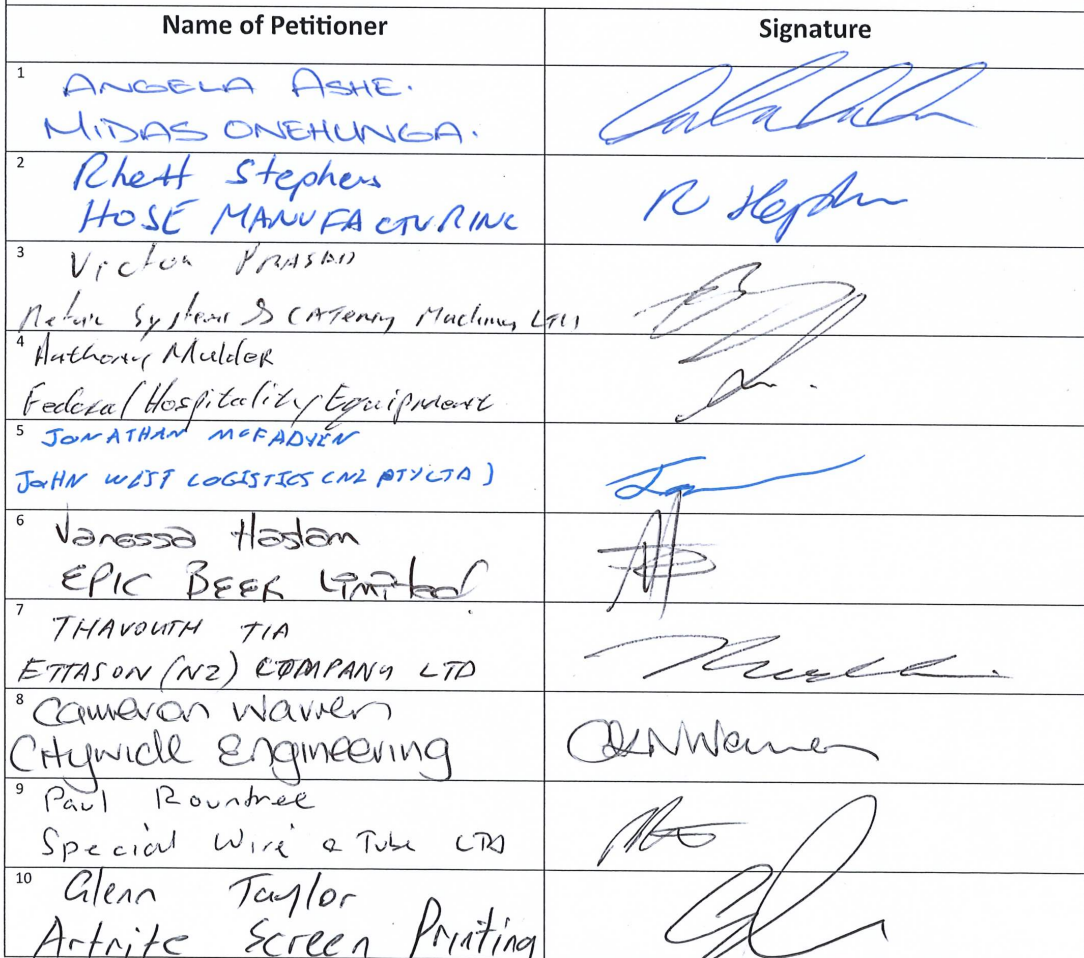 Name of Petitioner Signature
1 ANGELA ASHE.
MIDAS ONEHUNGA.
2 Rhett Stephens R Stephen
HOSE MANUFACTURING
3 Victor PRASAD
Systems & CATering Machinery LTD
4 Anthony Mulder
Federal Hospitality Equipment
5 JONATHAN MCFADYEN
JOHN WEST LOGISTICS (NZ PTY LTD)
6 Vanessa Haslam
EPIC BEER Limited
7 THAVOUTH TIA
ETTASON (NZ) COMPANY LTD
8 Cameron Warren
Citywide Engineering
9 Paul Rountree
Special Wire & Tube LTD
10 Glenn Taylor
Artrite Screen Printing